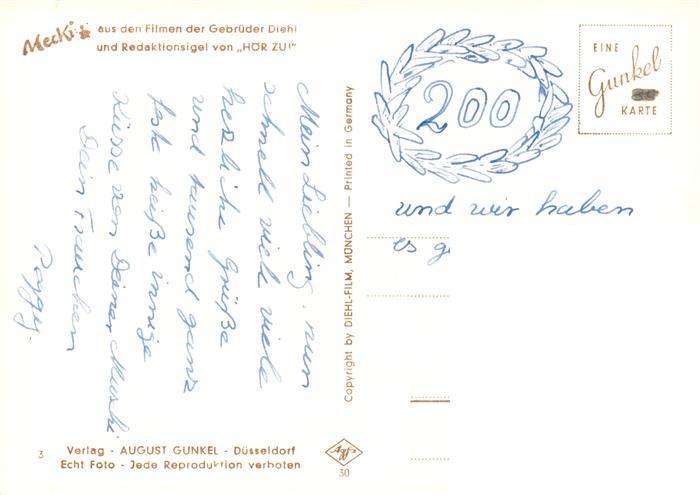 Mecki
aus den Filmen der Gebrüder Diehl
und Redaktionsigel von „HÖR ZU!"
Mein Liebling, nun
schnell viel viele
herzliche Grüße
und tausend ganz
feste heiße innige
Küsse von Deiner Muschi
Dein Frauchen
Copyright by DIEHL-FILM, MÜNCHEN — Printed in Germany
200
EINE
Gunkel
KARTE
und wir haben
es g
3
Verlag - AUGUST GUNKEL - Düsseldorf
Echt Foto - Jede Reproduktion verboten
Agfa
30